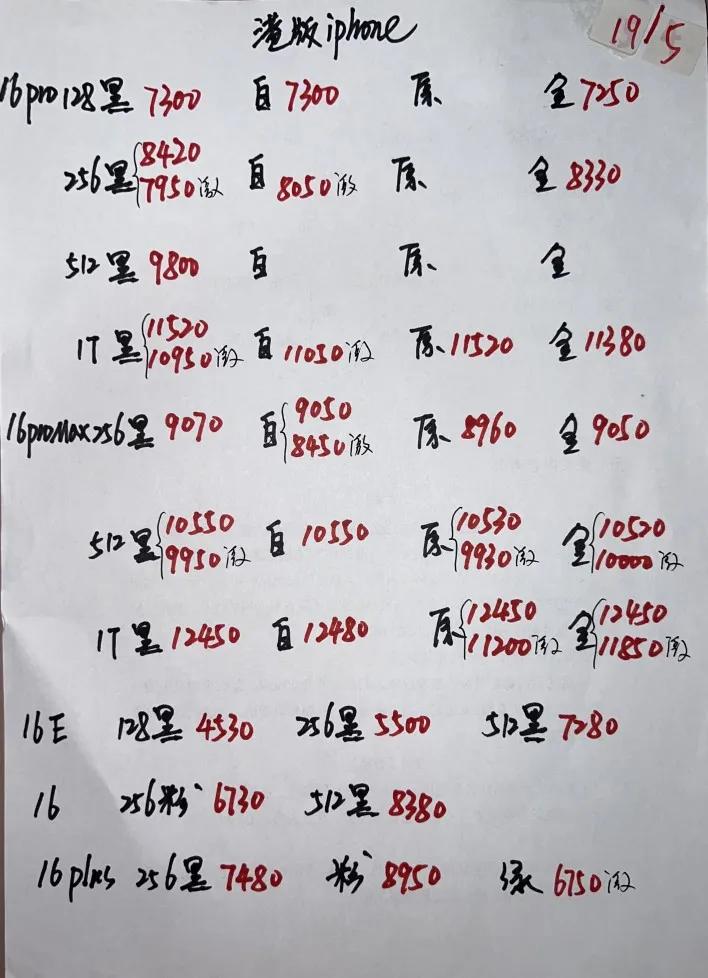 港版iphone 19/5
16pro128黑 7300 白 7300 原、 金 7250
256黑 8420 7950激 白 8050激 原、 金 8330
512黑 9800 白 原、 金
1T黑 11520 10950激 白 11050激 原、11520 金 11380
16proMax256黑 9070 白 9050 8450激 原、8960 金 9050
512黑 10550 9950激 白 10550 原、10530 9930激 金 10520 10000激
1T黑 12450 白 12480 原、12450 11200激 金 12450 11850激
16E 128黑 4530 256黑 5500 512黑 7280
16 256粉 6730 512黑 8380
16plus 256黑 7480 粉 8950 绿 6750激